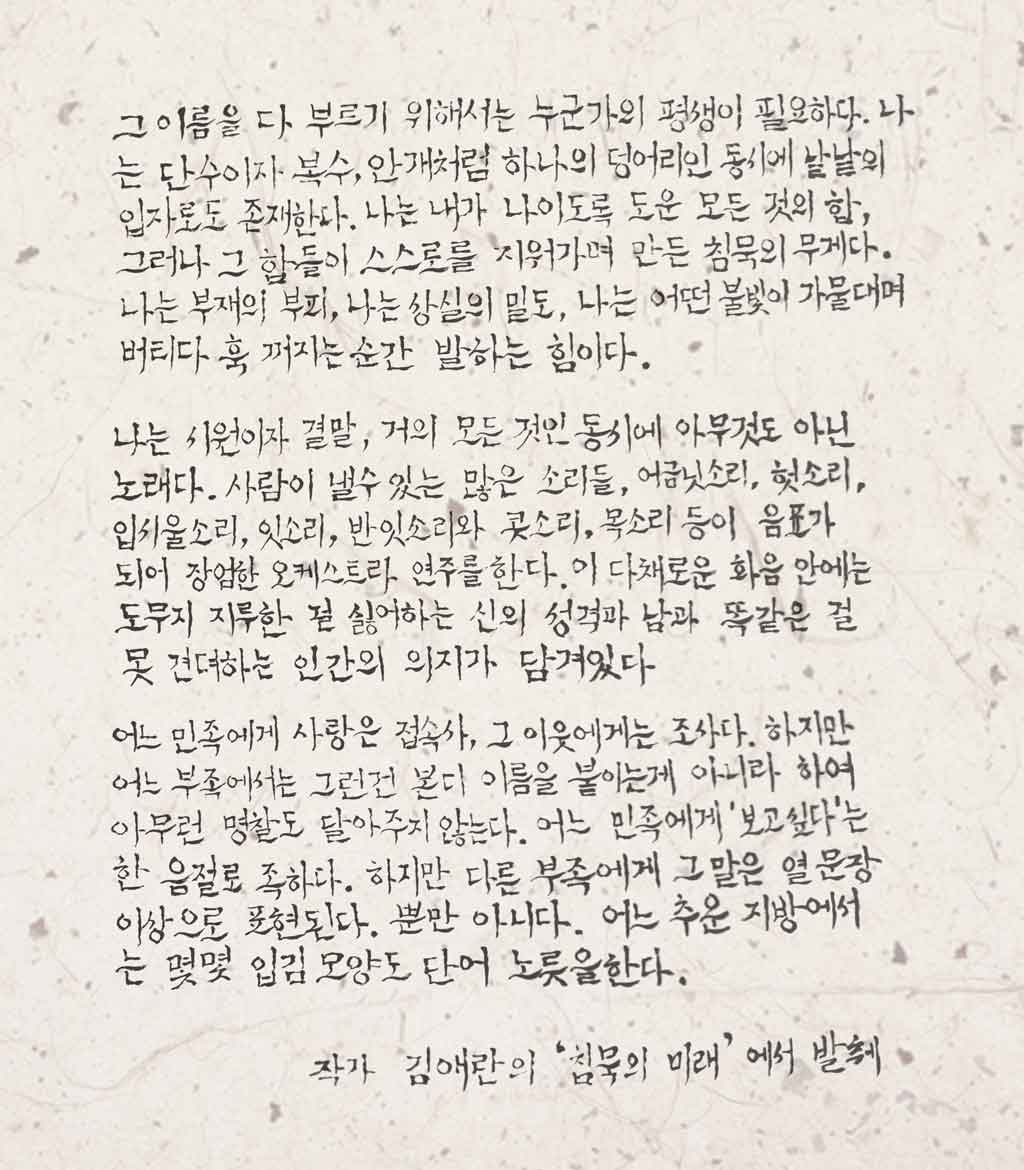 그 이름을 다 부르기 위해서는 누군가의 평생이 필요하다. 나
는 단수이자 복수, 안개처럼 하나의 덩어리인 동시에 낱낱의
입자로도 존재한다. 나는 내가 나이도록 도운 모든 것의 합,
그러나 그 합들이 스스로를 지워가며 만든 침묵의 무게다.
나는 부재의 부피, 나는 상실의 밀도, 나는 어떤 불빛이 가물대며
버티다 훅 꺼지는 순간 발하는 힘이다.
나는 시원이자 결말, 거의 모든 것인 동시에 아무것도 아닌
노래다. 사람이 낼수 있는 많은 소리들, 어금닛소리, 혓소리,
입시울소리, 잇소리, 반잇소리와 콧소리, 목소리 등이 음표가
되어 장엄한 오케스트라 연주를 한다. 이 다채로운 화음 안에는
도무지 지루한 걸 싫어하는 신의 성격과 남과 똑같은 걸
못 견뎌하는 인간의 의지가 담겨있다
어느 민족에게 사랑은 접속사, 그 이웃에게는 조사다. 하지만
어느 부족에서는 그런건 본디 이름을 붙이는게 아니라 하여
아무런 명찰도 달아주지 않는다. 어느 민족에게 '보고싶다'는
한 음절로 족하다. 하지만 다른 부족에게 그 말은 열 문장
이상으로 표현된다. 뿐만 아니다. 어느 추운 지방에서
는 몇몇 입김 모양도 단어 노릇을한다.
작가 김애란의 '침묵의 미래' 에서 발췌